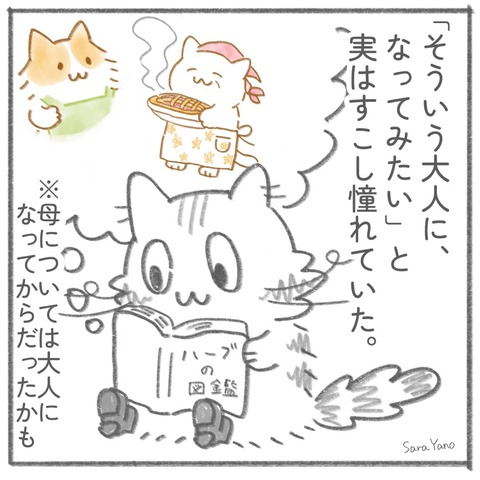 「そういう大人に、
なってみたい」と
実はすこし憧れていた。
※母については大人に
なってからだったかも
ハーブ
の
図鑑
Sara Yano